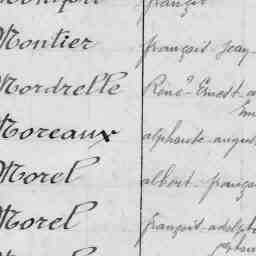 Montier françois-jean-
Mordrelle René-Ernest-a
Moreaux alphonse-augus
Morel albert-françai
Morel françois-adolph